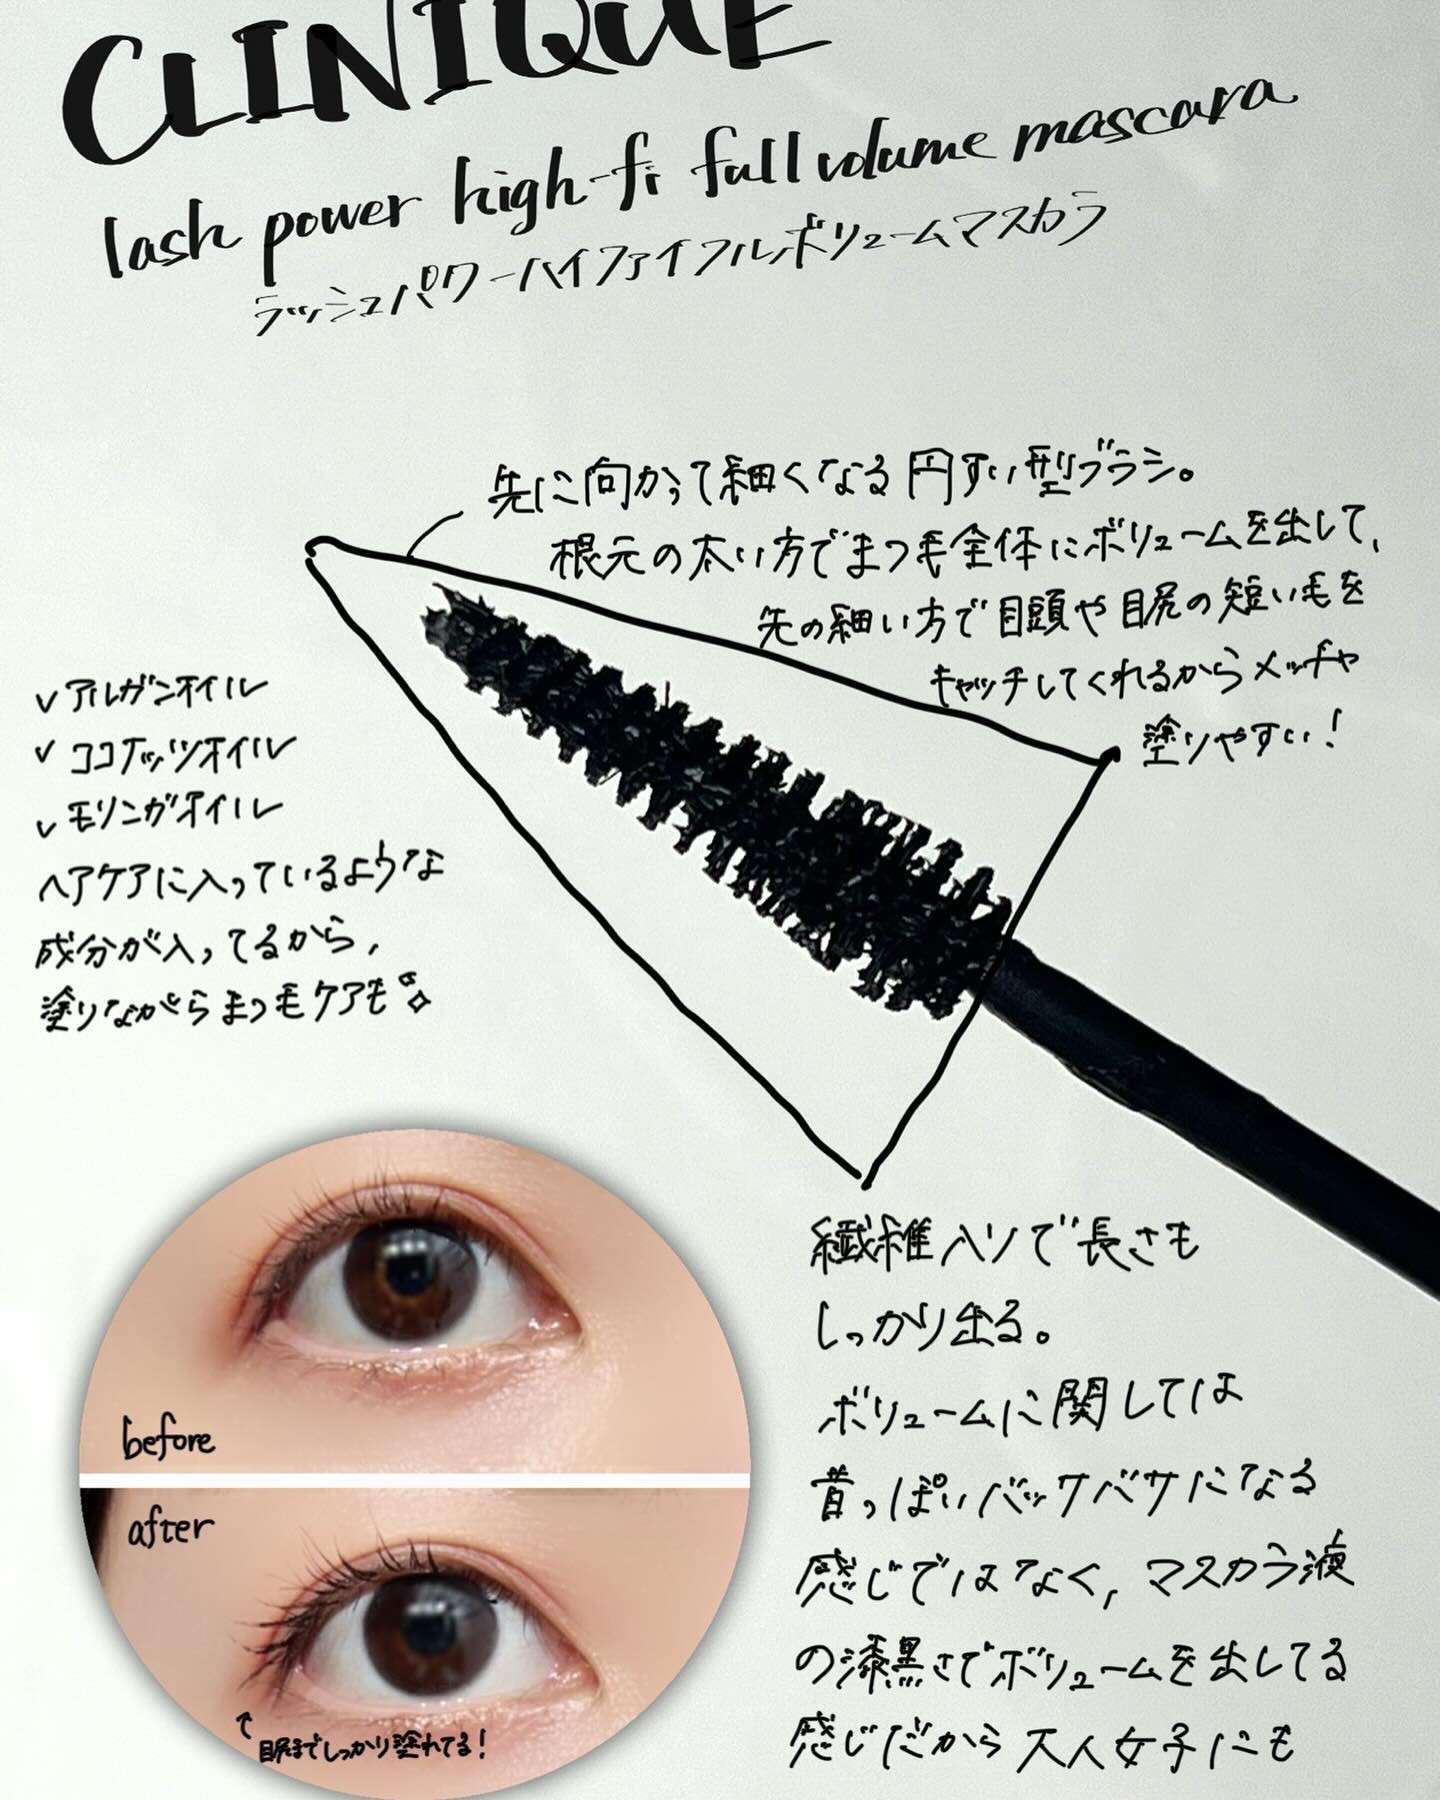 CLINIQUE
lash power high-fi full volume mascara
ラッシュパワーハイファイフルボリュームマスカラ
先に向かって細くなる円すい型ブラシ。
根元の太い方でまつ毛全体にボリュームを出して、
先の細い方で目頭や目尻の短い毛を
キャッチしてくれるからメッチャ
塗りやすい!
✓アルガンオイル
✓ココナッツオイル
✓モリンガオイル
ヘアケアに入っているような
成分が入ってるから、
塗りながらまつ毛ケアも
before
after
↑目尻までしっかり塗れてる!
繊維入りで長さも
しっかり出る。
ボリュームに関しては
昔っぽいバッサバサになる
感じではなく、マスカラ液
の漆黒さでボリュームを出してる
感じだから大人女子にも